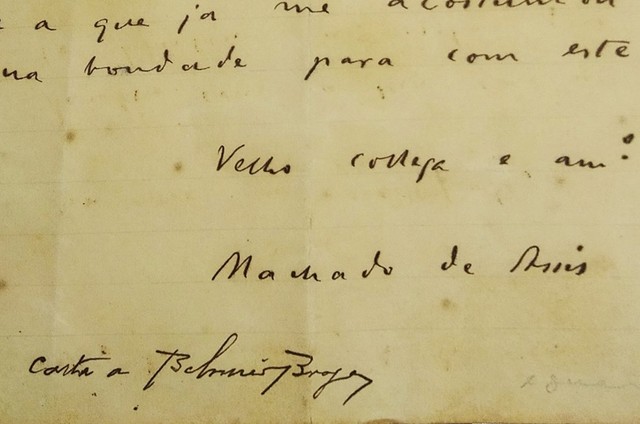 e a que ja me acostumou
ua bondade para com este
Velho collega e am.º
Machado de Assis
carta a Belmiro Braga